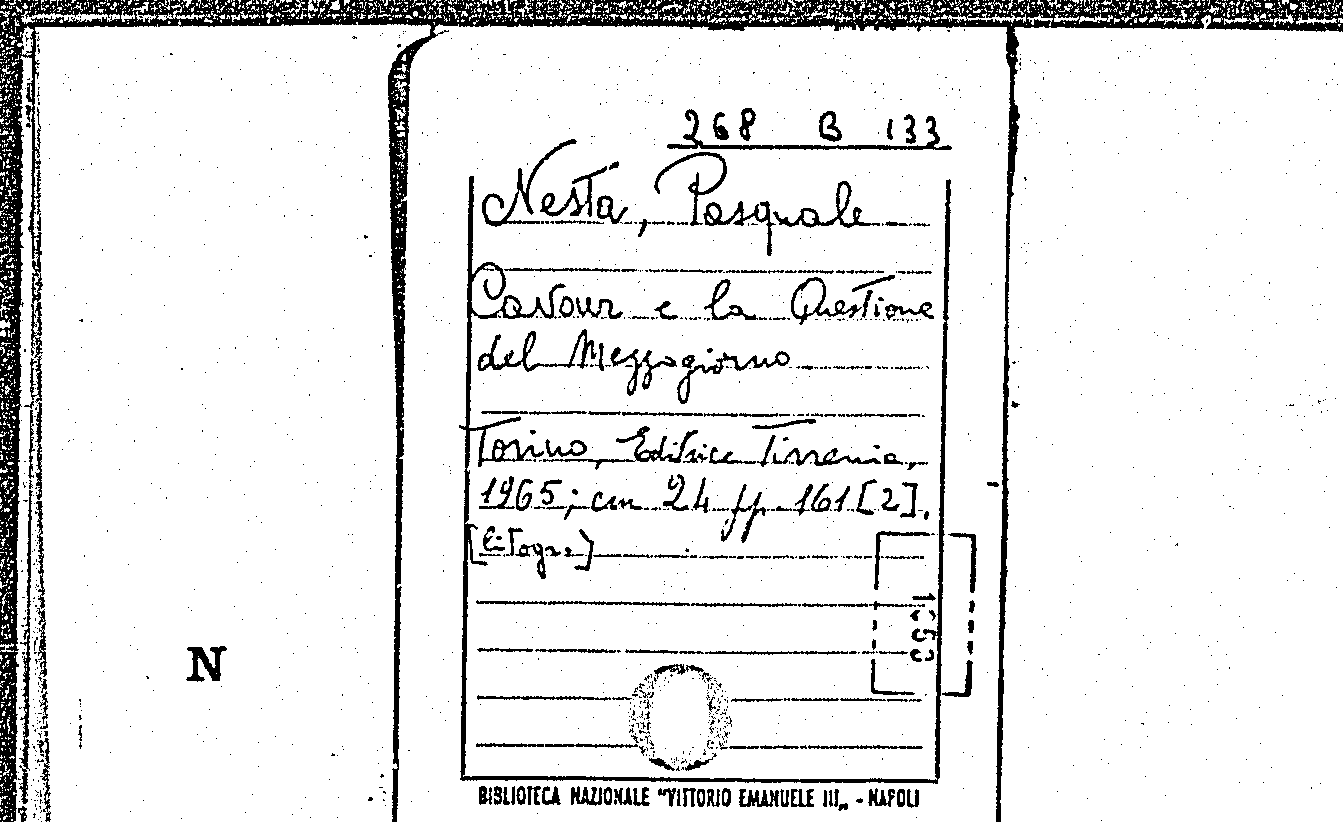 268 B 133
Nesta, Pasquale
Cavour e la Questione
del Mezzogiorno
Torino, Editrice Tirrenia,
1965; cm 24 pp. 161 [2].
N
BIBLIOTECA NAZIONALE "VITTORIO EMANUELE III„ - NAPOLI